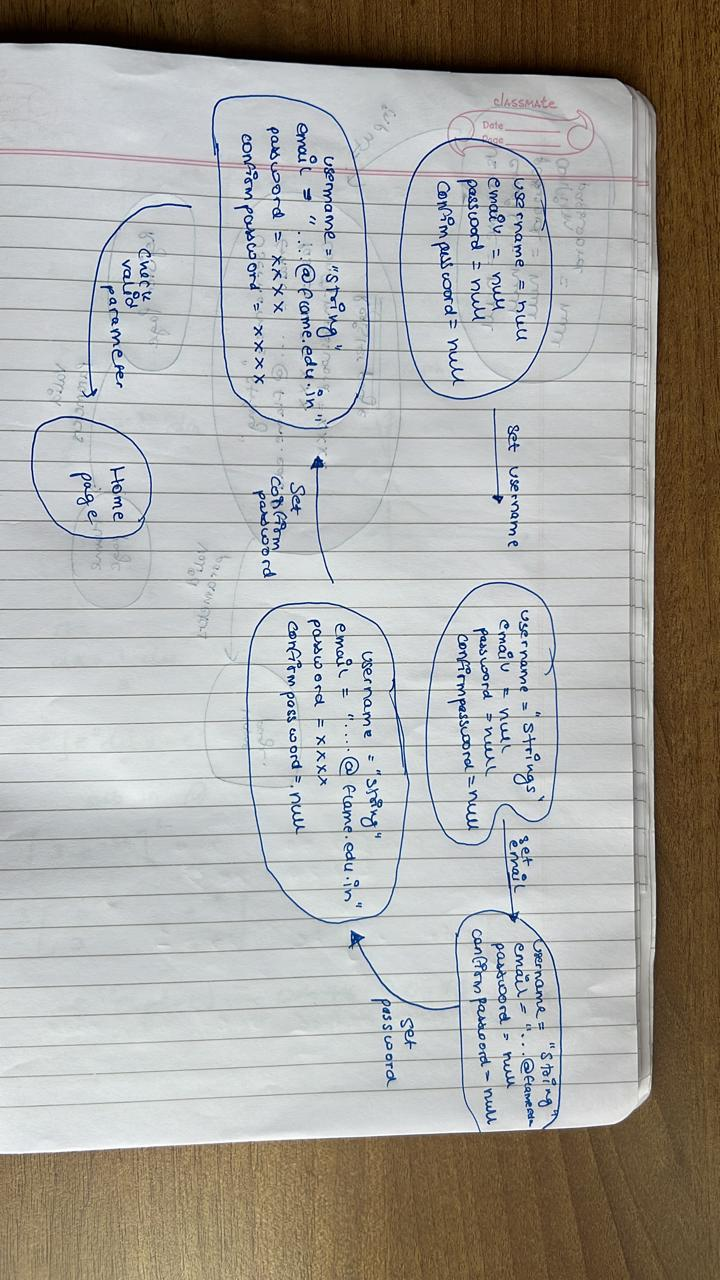 classmate
Date
Page
username = null
email = null
password = null
confirm password = null
set username
username = "strings"
email = null
password = null
confirm password = null
set
email
username = "string"
email = "...@flame.edu
password = null
confirm password = null
set
password
username = "string"
email = "....@flame.edu.in"
password = xxxx
confirm password = null
set
confirm
password
username = "string"
email = "...@flame.edu.in"
password = xxxx
confirm password = xxxx
check
valid
parameter
Home
page